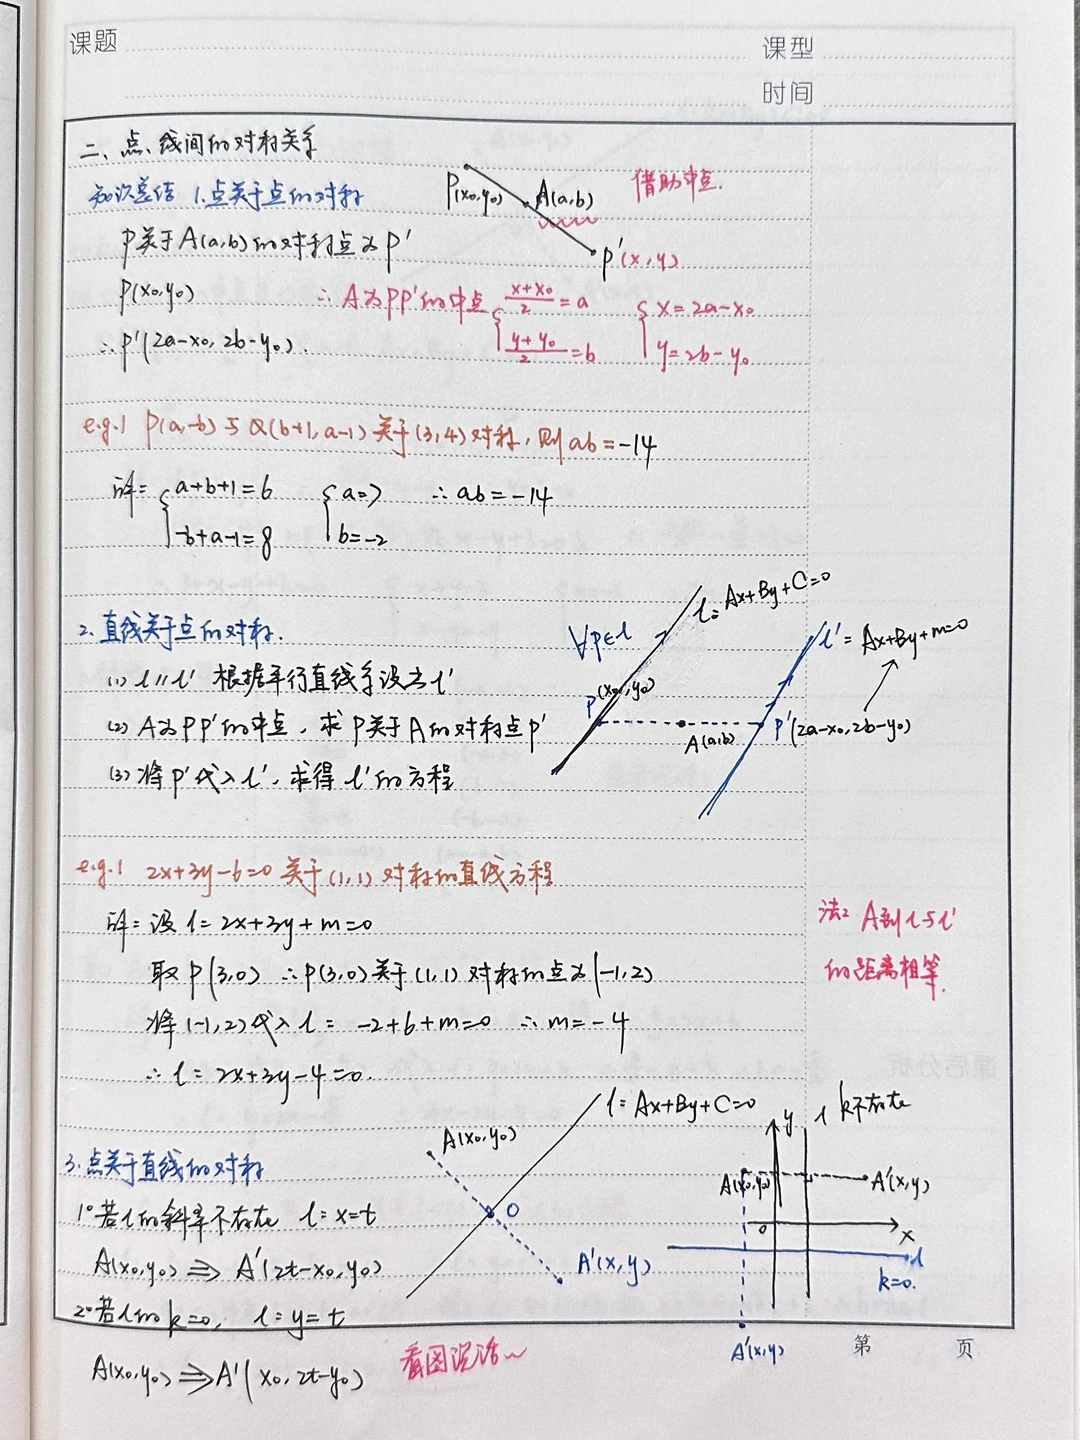 课题
课型
时间
二、点、线间的对称关系
知识总结 1.点关于点的对称
P(x₀,y₀) A(a,b) 借助中点.
P关于A(a,b)的对称点为P'
P'(x,y)
P(x₀,y₀) ∴A为PP'的中点 { (x+x₀)/2=a { x=2a-x₀
∴P'(2a-x₀, 2b-y₀). (y+y₀)/2=b y=2b-y₀
e.g.1 P(a,-b)与Q(b+1,a-1)关于(3,4)对称,则ab=-14
解: { a+b+1=6 { a=7 ∴ab=-14
-b+a-1=8 b=-2
l: Ax+By+C=0
2.直线关于点的对称. ∀P∈l l': Ax+By+m=0
(1) l∥l' 根据平行直线系设为l'
P(x₀,y₀)
(2) A为PP'的中点,求P关于A的对称点P'
A(a,b) P'(2a-x₀,2b-y₀)
(3) 将P'代入l',求得l'的方程
e.g.1 2x+3y-6=0关于(1,1)对称的直线方程
解:设l:2x+3y+m=0
法2 A到l与l'
的距离相等.
取P(3,0) ∴P(3,0)关于(1,1)对称的点为(-1,2)
将(-1,2)代入l: -2+6+m=0 ∴m=-4
∴l: 2x+3y-4=0.
课后分析
3.点关于直线的对称
A(x₀,y₀) l: Ax+By+C=0
O
A'(x,y)
y l k不存在
A(x₀,y₀) A'(x,y)
0 x
l
k=0.
A'(x,y)
1°若l的斜率不存在 l: x=t
A(x₀,y₀) ⇒ A'(2t-x₀,y₀)
2°若l的k=0, l: y=t
A(x₀,y₀) ⇒ A'(x₀,2t-y₀)
看图说话~
第 页